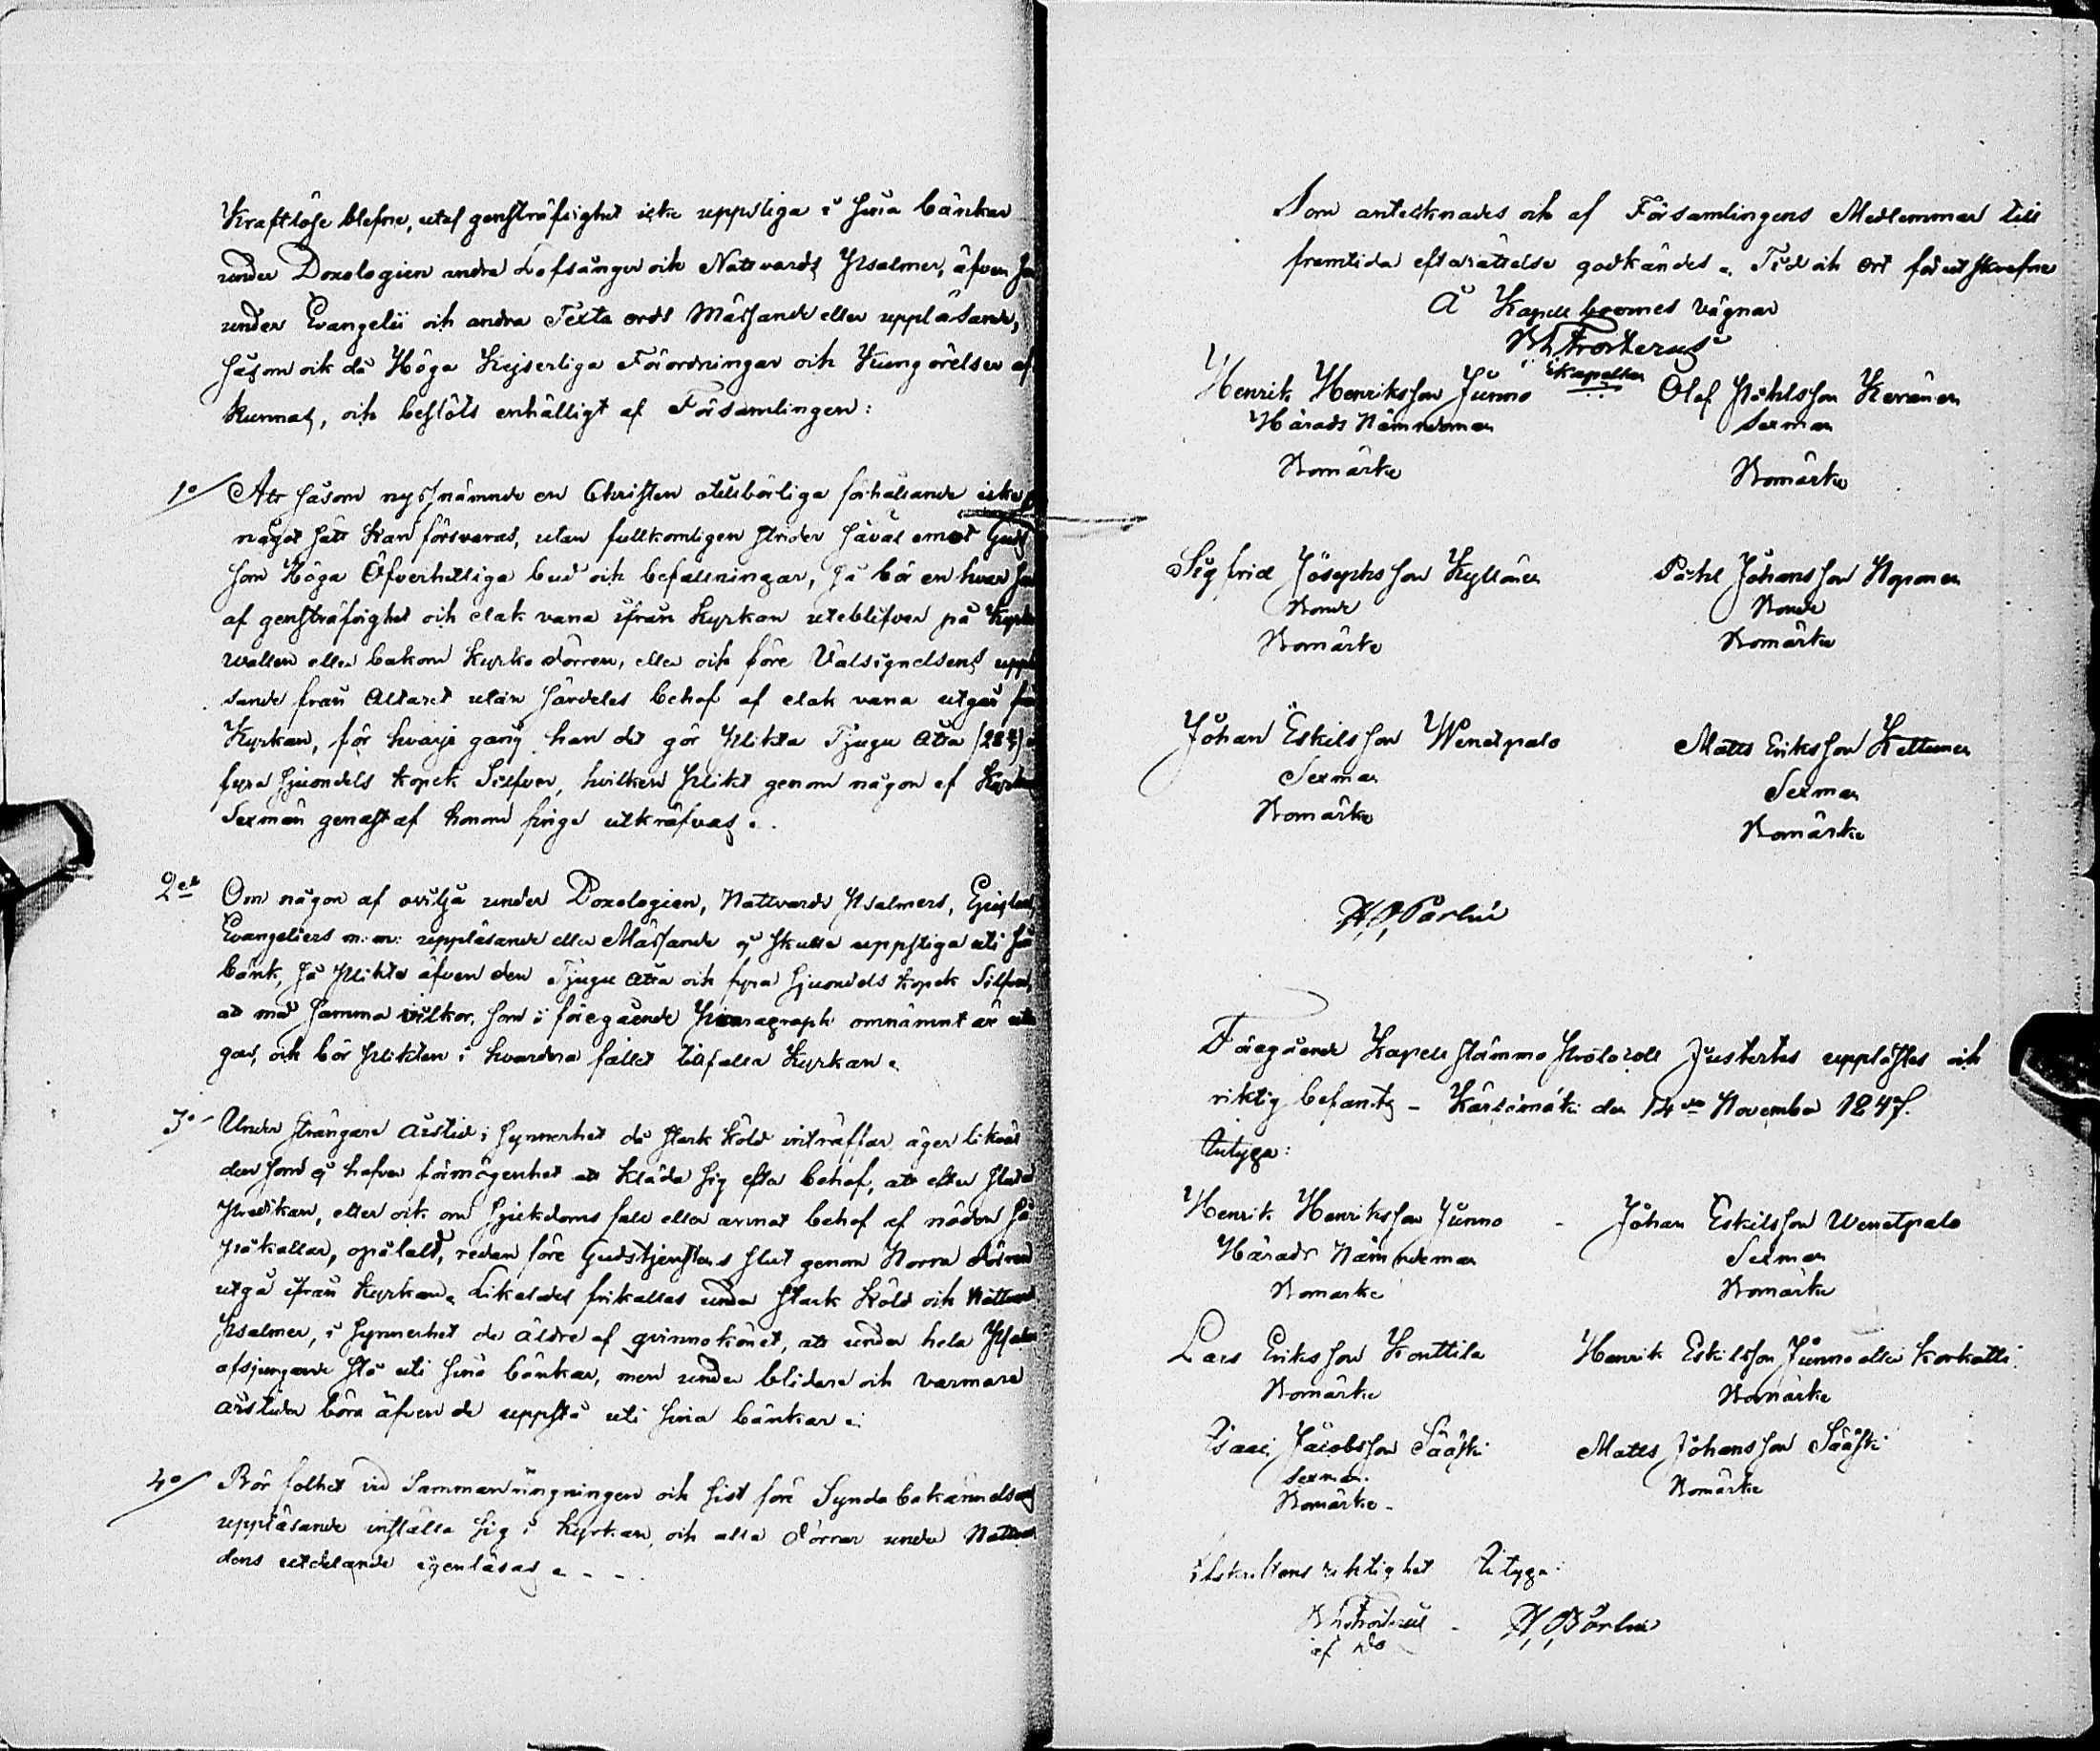 Kraftlöse blefne, utaf gensträfvighet icke uppstiga i sina bänkar
under Doxologien andra Lofsånger och Nattvards Psalmer, äfven
under Evangelii och andra Texta ords Mässande eller uppläsande,
såsom ock då Höga Kejserliga Förordningar och Kungörelser af
kunnas, och beslöts enhälligt af Församlingen:
1o/ Att såsom nyssnämnde en Christen otillbörliga förhållande icke
något sätt kan försvaras, utan fullkomligen strider såväl emot Guds
som Höga Öfverhetliga bud och befallningar, så bör en hvar som
af gensträfvighet och elak vana ifrån Kyrkan uteblifver på Kyrko
wallen eller bakom Kyrko dörren, eller och före Välsignelsens upplä
sande från Altaret utan särdeles behof af elak vana utgår från
Kyrkan, för hvarje gång han det gör plikta Tjugu Åtta (28 4/7)
fyra sjuondels kopek Silfver, hvilken plikt genom någon af Kyrkans
Sexmän genast af honom finge utkräfvas.
2o Om någon af ovilja under Doxologien, Nattvards Psalmers, Epistlars,
Evangeliers m: m: uppläsande eller Mässande ej skulle uppstiga uti sin
bänk, så plikte äfven den Tjugu Åtta och fyra sjuondels kopek Silfver,
att med samma vilkor, som i föregående Paragraph omnämnt är
gas, och bör plikten i hvardera fallet tillfalla Kyrkan.
3o Under strängare årstid i synnerhet då stark köld inträffar äger likväl
den som ej hafver förmögenhet att kläda sig efter behof, att efter slutad
Predikan, eller ock om sjukdoms fall eller annat behof af nöden så
påkallar, opåtaldt, redan före Gudstjenstens slut genom Norra dörren
utgå ifrån Kyrkan. Likaledes frikallas under stark köld och Nattvards
Psalmer, i synnerhet de äldre af qvinnokönet, att under hela Psalm
afsjungande stå uti sina bänkar, men under blidare och varmare
årstider böra äfven de uppstå uti sina bänkar.
4o/ Bör folket vid Sammanringningen och sist före Syndabekännelsens
uppläsande inställa sig i Kyrkan, och alla dörrar under Nattvar
dens utdelande igenläsas. - -
Som antecknades och af Församlingens Medlemmar till
framtida efterrättelse godkändes. Tid och ort förutskrefne
Å Kapellboernes Vägnar
Frosterus
Kapellan
Henrik Henriksson Junno
Härads Nämndeman
Bomärke
Olof Påhlsson Keränen
Sexman
Bomärke
Sigfrid Josephsson Kyllönen
Bonde
Bomärke
Påhl Johansson Noponen
Bonde
Bomärke
Johan Eskilsson Wenetpalo
Sexman
Bomärke
Matts Eriksson Kettunen
Sexman
Bomärke
Föregående Kapell stämmo Protocoll Justertes upplästes och
riktig befants - Kärsämäki den 14de November 1847.
Intyga:
Henrik Henriksson Junno
Härads Nämndeman
Bomärke
Johan Eskilsson Wenetpalo
Sexman
Bomärke
Lars Eriksson Konttila
Bomärke
Henrik Eskilsson Junno eller Korkatti
Bomärke
Isaac Jacobsson Sääski
Sexman.
Bomärke -
Matts Johansson Sääski
Bomärke
Afskriftens riktighet Intyga: